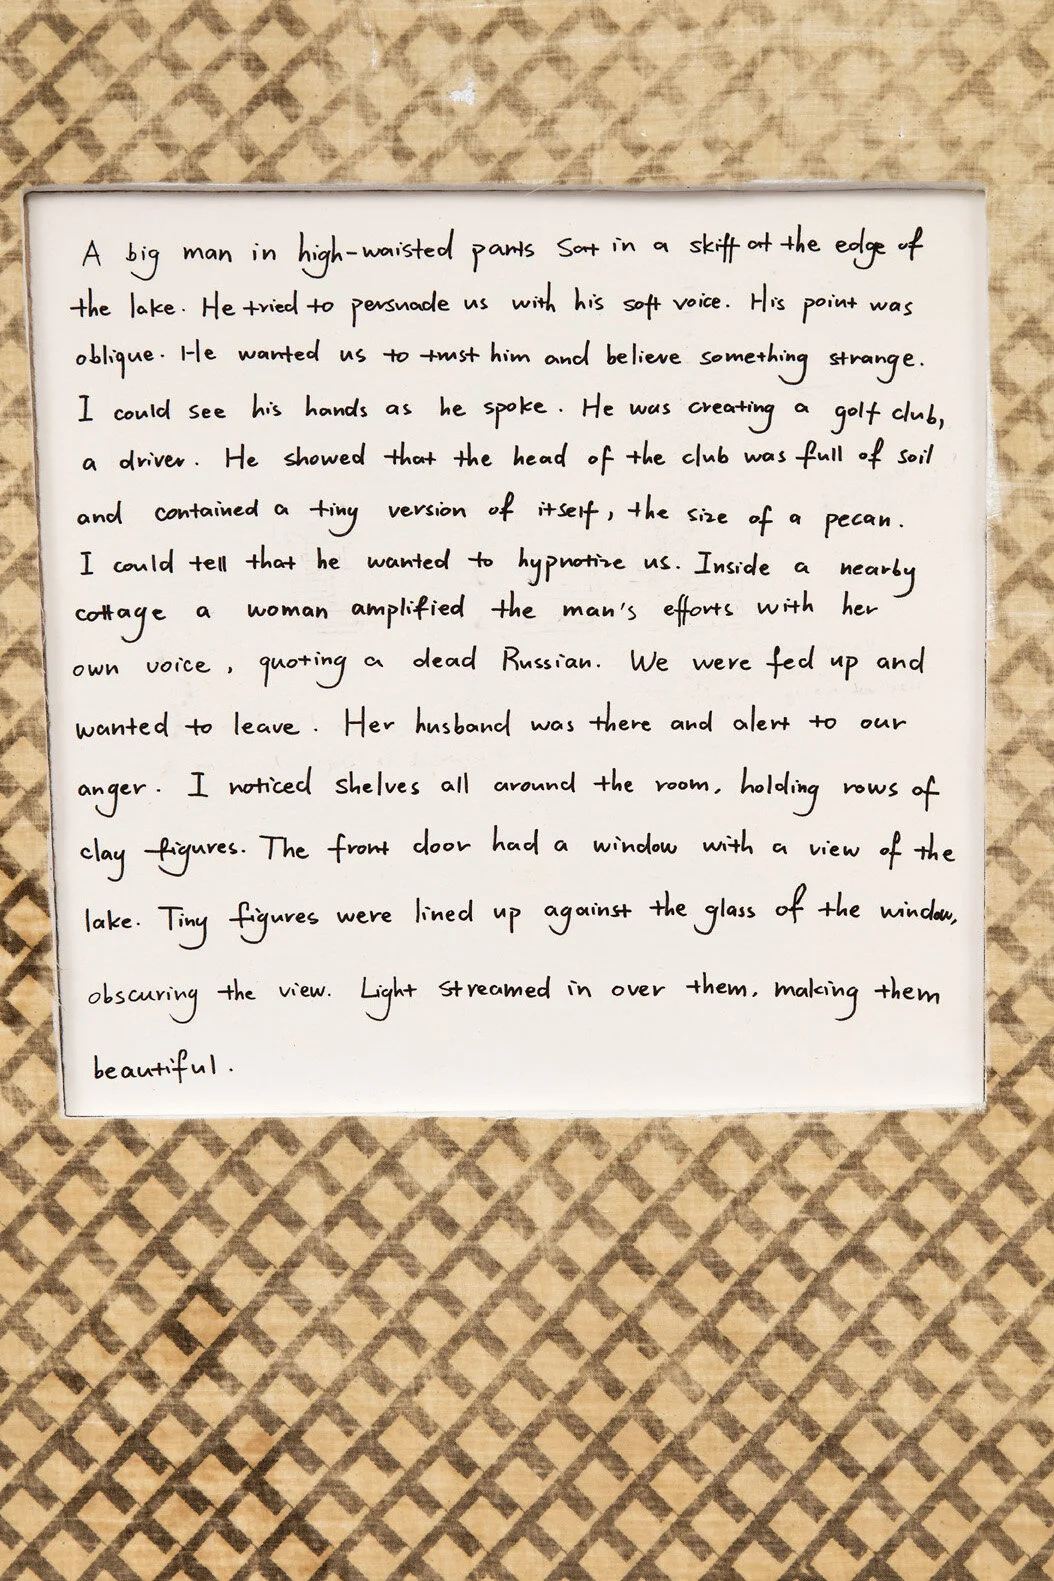 A big man in high-waisted pants sat in a skiff at the edge of
the lake. He tried to persuade us with his soft voice. His point was
oblique. He wanted us to trust him and believe something strange.
I could see his hands as he spoke. He was creating a golf club,
a driver. He showed that the head of the club was full of soil
and contained a tiny version of itself, the size of a pecan.
I could tell that he wanted to hypnotize us. Inside a nearby
cottage a woman amplified the man's efforts with her
own voice, quoting a dead Russian. We were fed up and
wanted to leave. Her husband was there and alert to our
anger. I noticed shelves all around the room, holding rows of
clay figures. The front door had a window with a view of the
lake. Tiny figures were lined up against the glass of the window,
obscuring the view. Light streamed in over them, making them
beautiful.